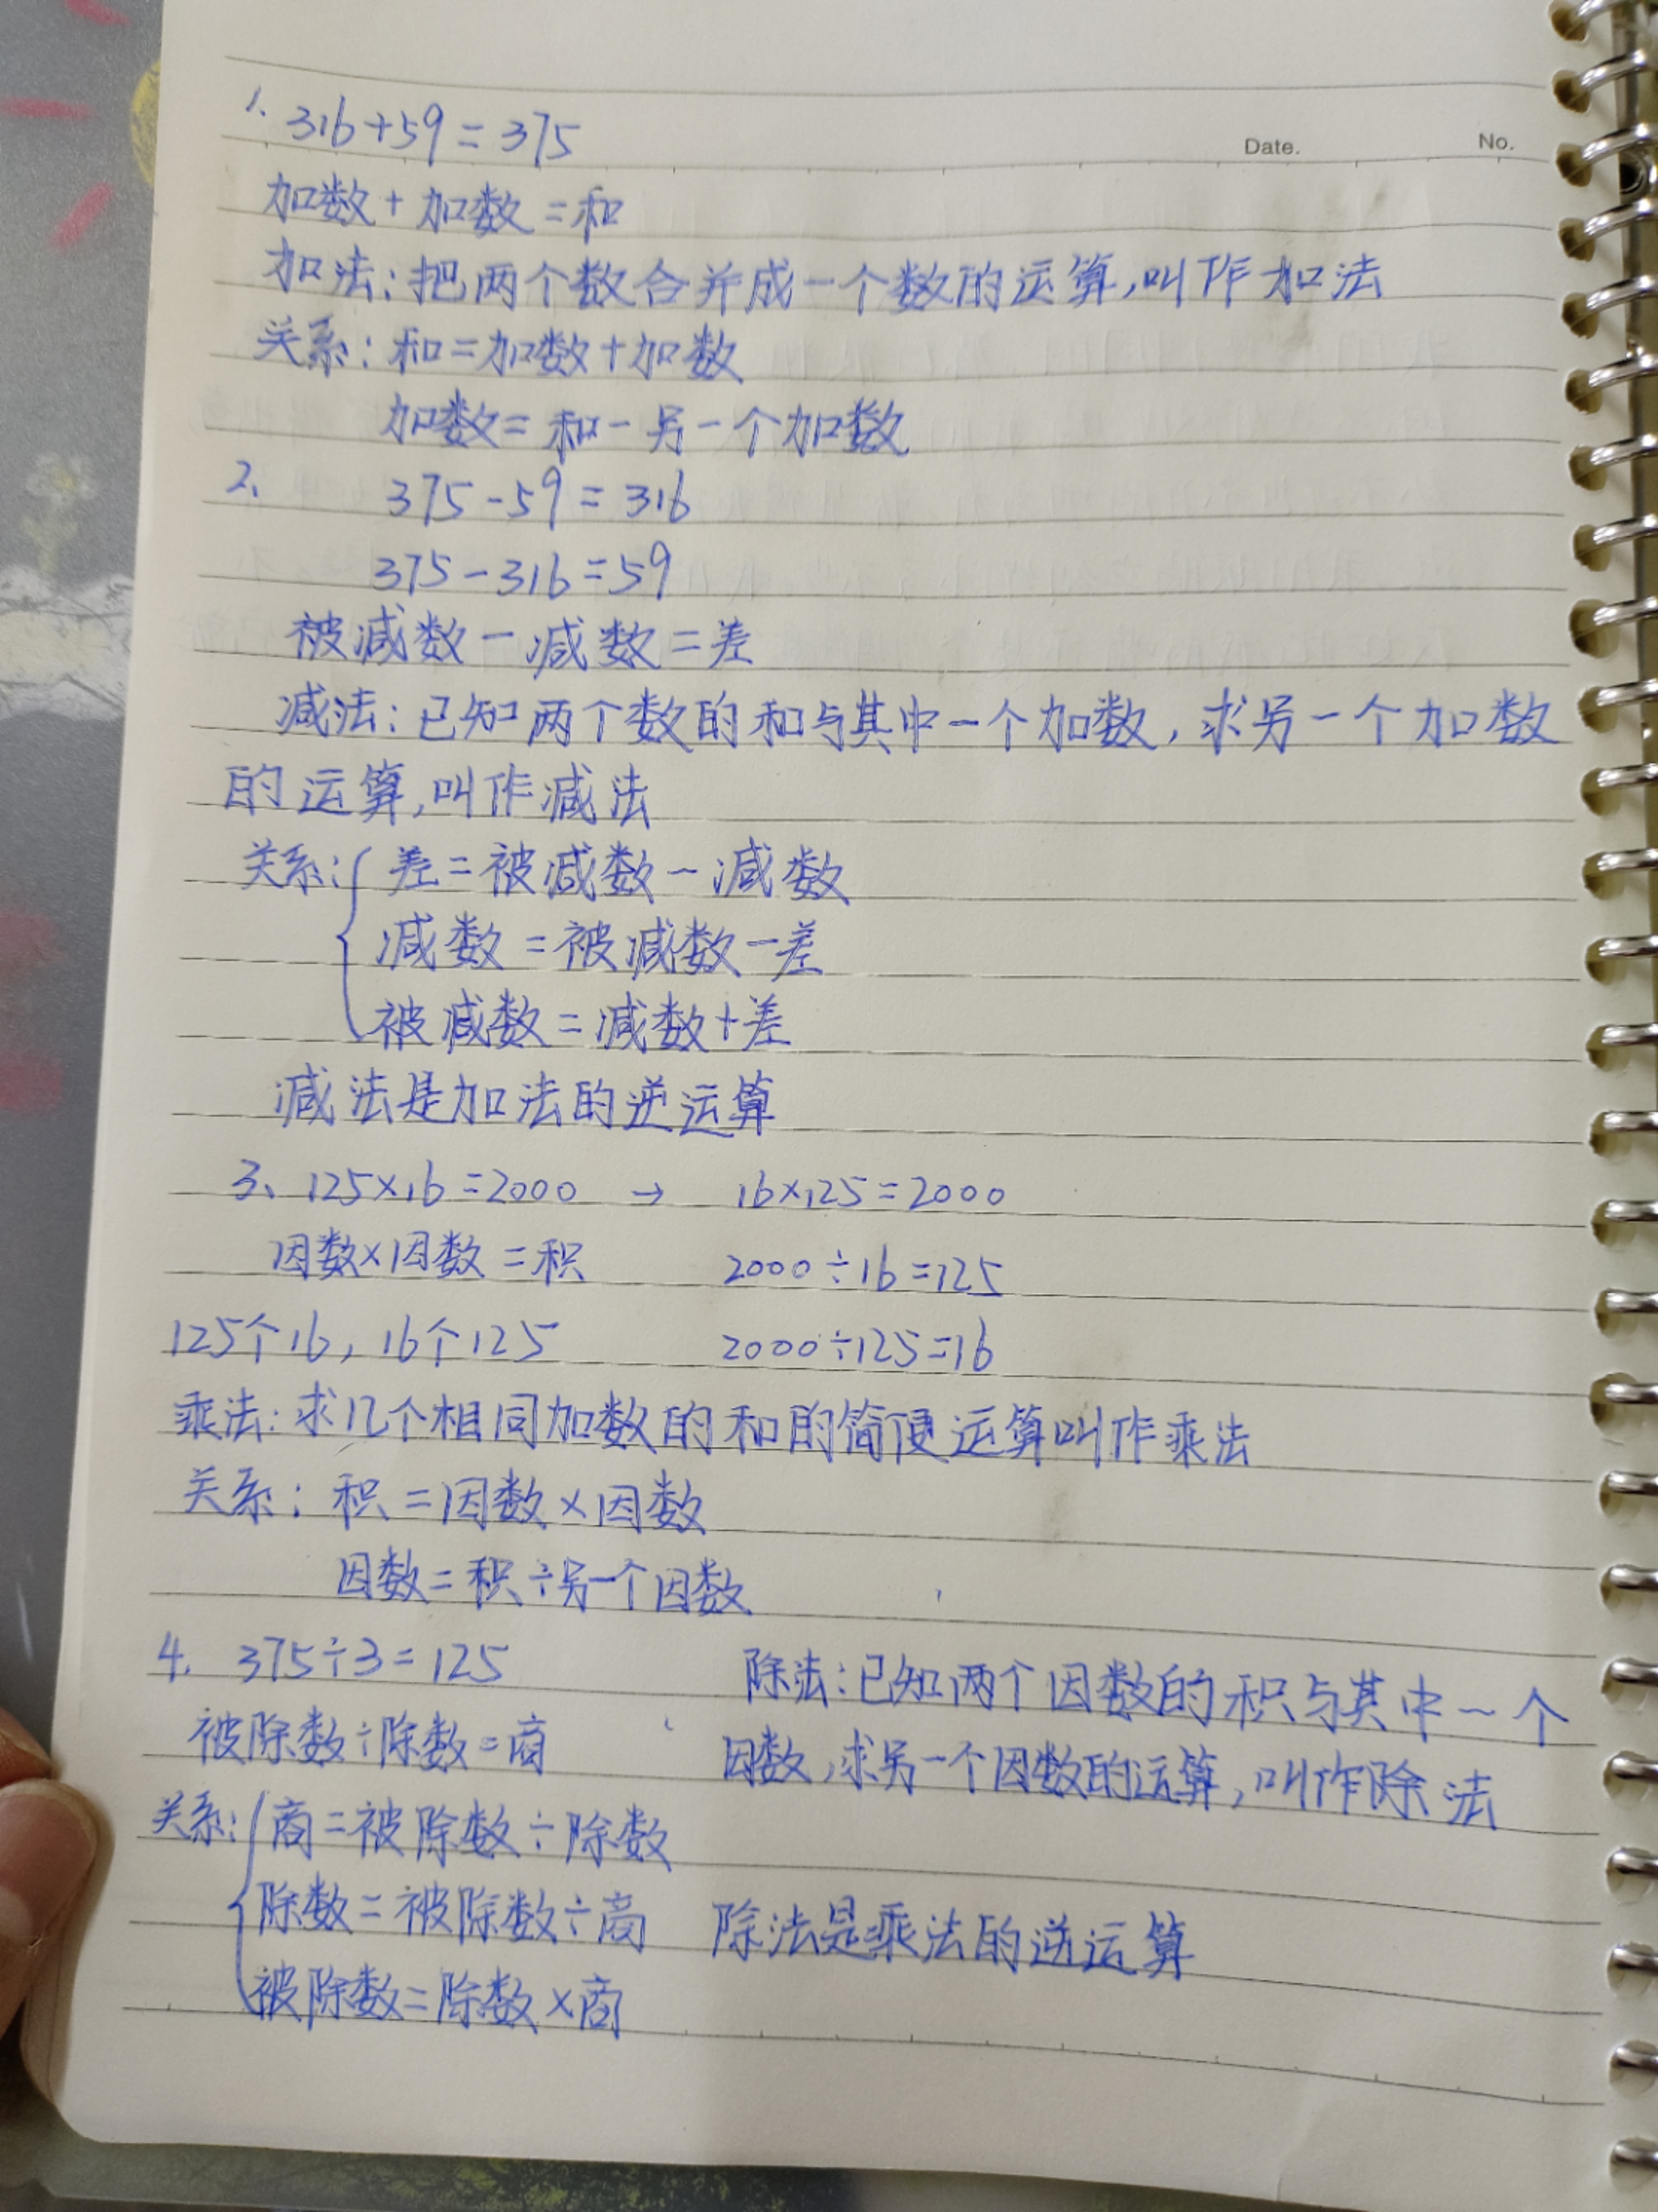 Date. No.
1. 316+59=375
加数+加数=和
加法:把两个数合并成一个数的运算,叫作加法
关系:和=加数+加数
加数=和-另一个加数
2、 375-59=316
375-316=59
被减数-减数=差
减法:已知两个数的和与其中一个加数,求另一个加数
的运算,叫作减法
关系:{差=被减数-减数
减数=被减数-差
被减数=减数+差
减法是加法的逆运算
3、125×16=2000 → 16×125=2000
因数×因数=积 2000÷16=125
125个16,16个125 2000÷125=16
乘法:求几个相同加数的和的简便运算叫作乘法
关系:积=因数×因数
因数=积÷另一个因数
4. 375÷3=125 除法:已知两个因数的积与其中一个
被除数÷除数=商 因数,求另一个因数的运算,叫作除法
关系:{商=被除数÷除数
除数=被除数÷商 除法是乘法的逆运算
被除数=除数×商